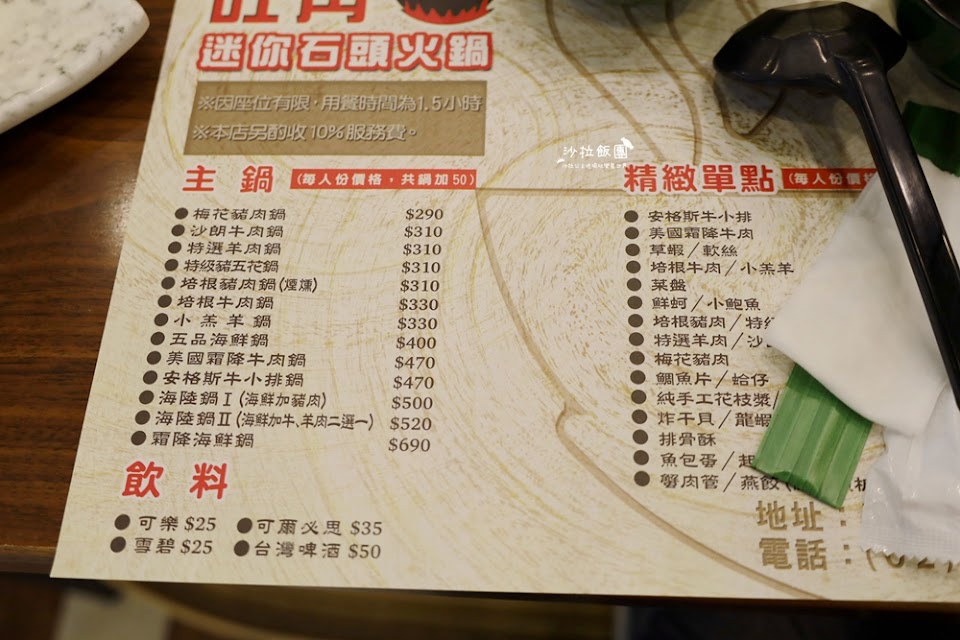 旺角
迷你石頭火鍋
※因座位有限，用餐時間為1.5小時
※本店另酌收10%服務費。
沙拉飯團
主鍋 (每人份價格，共鍋加50)
梅花豬肉鍋 $290
沙朗牛肉鍋 $310
特選羊肉鍋 $310
特級豬五花鍋 $310
培根豬肉鍋(煙燻) $310
培根牛肉鍋 $330
小羔羊鍋 $330
五品海鮮鍋 $400
美國霜降牛肉鍋 $470
安格斯牛小排鍋 $470
海陸鍋Ⅰ(海鮮加豬肉) $500
海陸鍋Ⅱ(海鮮加牛、羊肉二選一) $520
霜降海鮮鍋 $690
飲料
可樂 $25
可爾必思 $35
雪碧 $25
台灣啤酒 $50
精緻單點 (每人份價格
安格斯牛小排
美國霜降牛肉
草蝦／軟絲
培根牛肉／小羔羊
菜盤
鮮蚵／小鮑魚
培根豬肉／特級
特選羊肉／沙
梅花豬肉
鯛魚片／蛤仔
純手工花枝漿／
炸干貝／龍蝦
排骨酥
魚包蛋／
蟹肉管／燕餃
地址：
電話：(02)